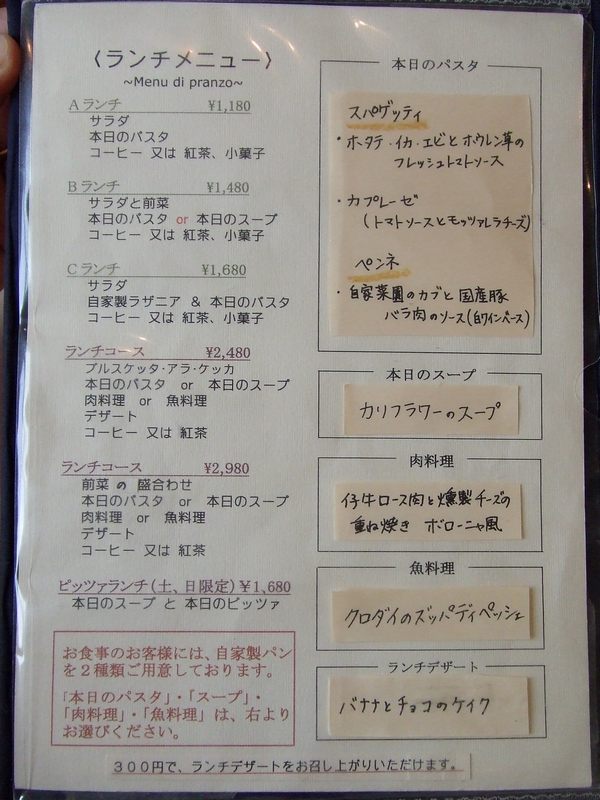 〈ランチメニュー〉
~Menu di pranzo~
Aランチ ¥1,180
サラダ
本日のパスタ
コーヒー 又は 紅茶、小菓子
Bランチ ¥1,480
サラダと前菜
本日のパスタ or 本日のスープ
コーヒー 又は 紅茶、小菓子
Cランチ ¥1,680
サラダ
自家製ラザニア & 本日のパスタ
コーヒー 又は 紅茶、小菓子
ランチコース ¥2,480
ブルスケッタ・アラ・ケッカ
本日のパスタ or 本日のスープ
肉料理 or 魚料理
デザート
コーヒー 又は 紅茶
ランチコース ¥2,980
前菜 の 盛合わせ
本日のパスタ or 本日のスープ
肉料理 or 魚料理
デザート
コーヒー 又は 紅茶
ピッツァランチ(土、日限定) ¥1,680
本日のスープ と 本日のピッツァ
お食事のお客様には、自家製パン
を2種類ご用意しております。
「本日のパスタ」・「スープ」・
「肉料理」・「魚料理」は、右より
お選びください。
本日のパスタ
スパゲッティ
・ホタテ・イカ・エビとホウレン草の
フレッシュトマトソース
・カプレーゼ
(トマトソースとモッツァレラチーズ)
ペンネ
・自家菜園のカブと国産豚
バラ肉のソース(白ワインベース)
本日のスープ
カリフラワーのスープ
肉料理
仔牛ロース肉と燻製チーズの
重ね焼き ボローニャ風
魚料理
クロダイのズッパディペッシェ
ランチデザート
バナナとチョコのケイク
300円で、ランチデザートをお召し上がりいただけます。